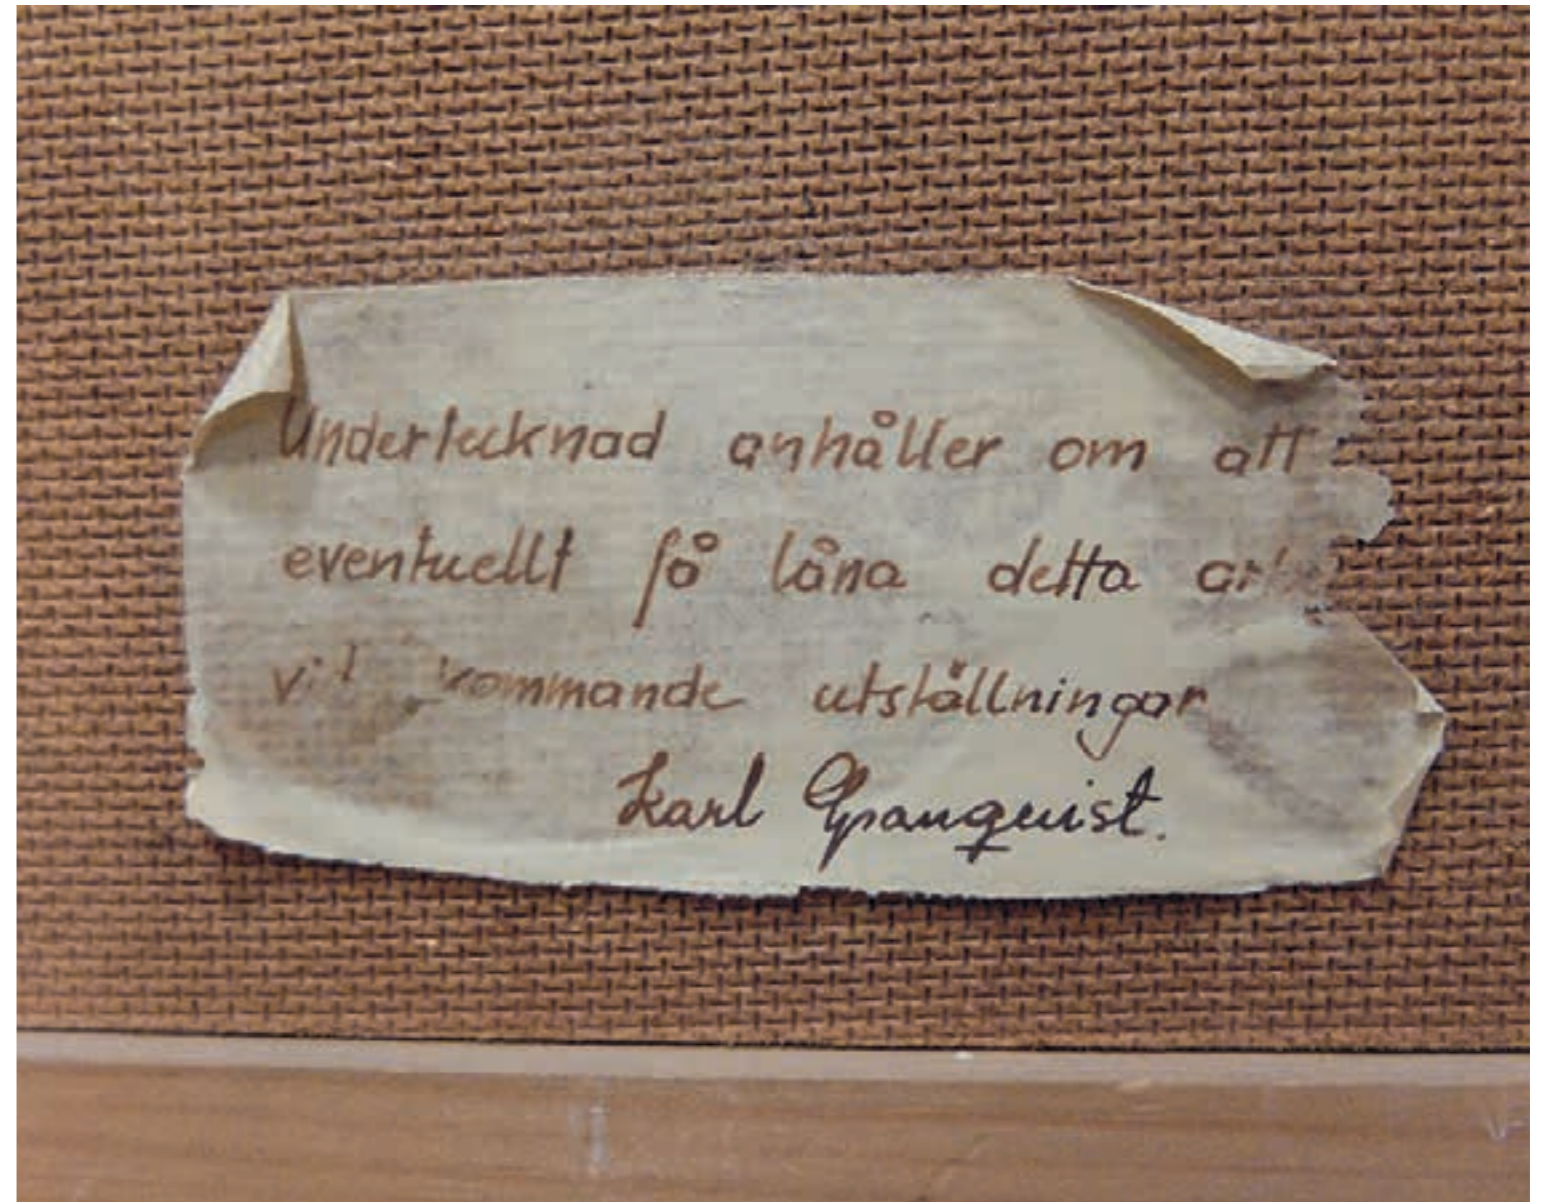 Undertecknad anhåller om att
eventuellt få låna detta
vid kommande utställningar
Karl Granquist.